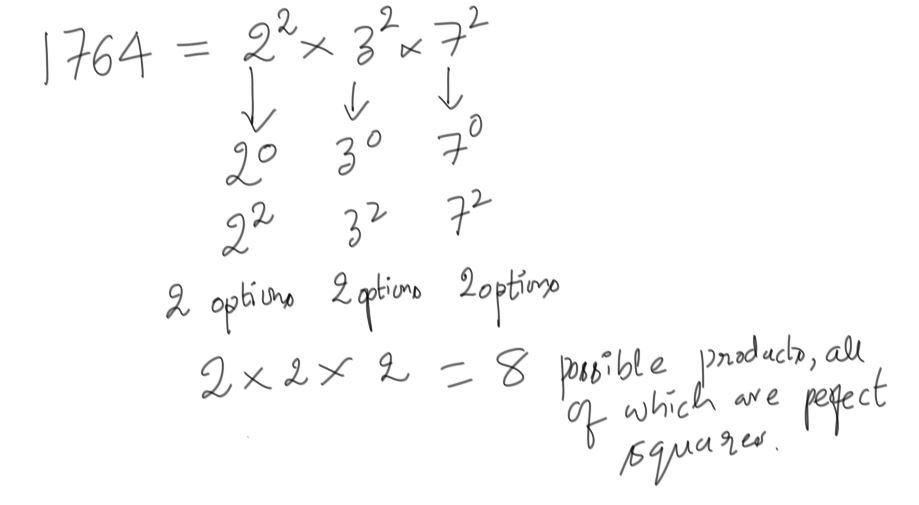 1764 = 2² × 3² × 7²
↓ ↓ ↓
2⁰ 3⁰ 7⁰
2² 3² 7²
2 options 2 options 2 options
2 × 2 × 2 = 8 possible products, all
of which are pefect
squares.